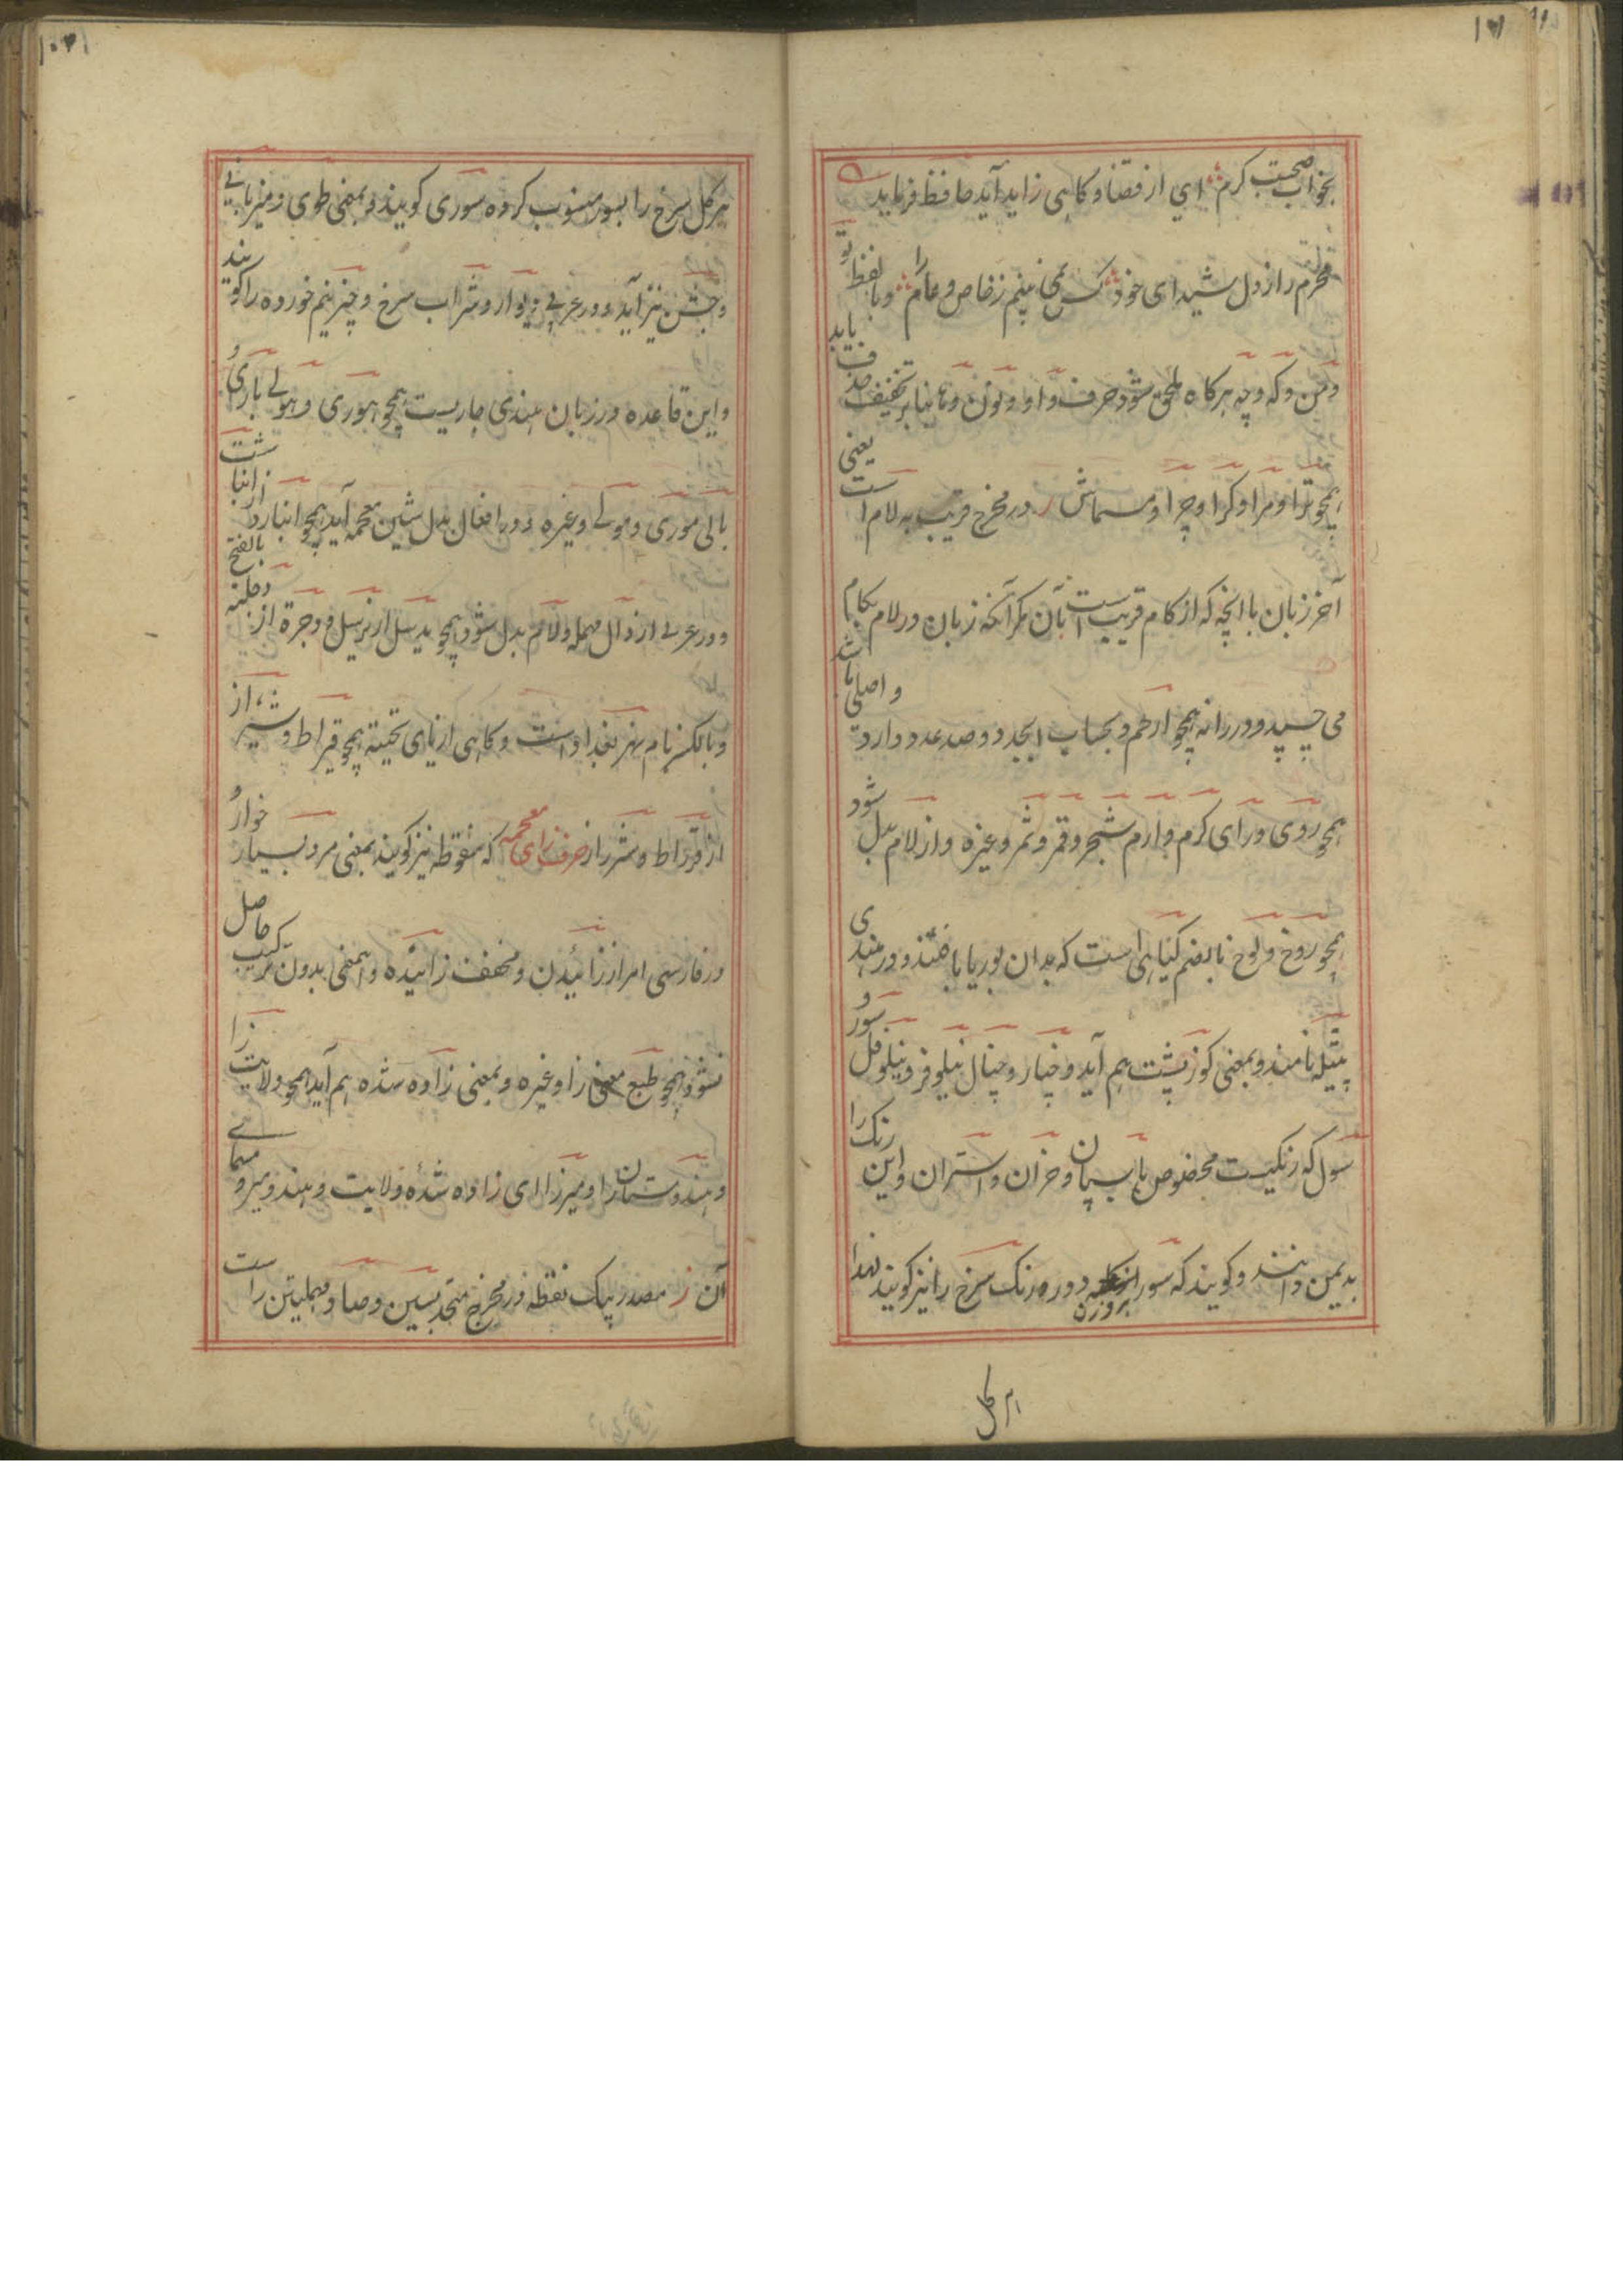 بخواب صحبت کرم ای از قضا و کاهی زاید آید حافظ فرماید
محرم راز دل شیدای خود کس نمی بینم ز خاص و عام را و با لفظ تو
و من و که و چه هرکاه ملحق شود حرف واو و نون و ها بنا بر تخفیف حذف یابد
همچو ترا و مرا و کرا و چرا و مسماش ر در مخرج قریب به لام است یعنی
آخر زبان با انچه که از کام قریبست بآن مکر آنکه زبان در لام بکام
می چسپد و در را نه همچو ارحم و بحساب ابجد دو صد عدد دارد و اصلی باشد
همچو روی و رای کرم و ارم شجر و قمر و ثمر و غیره و از لام بدل شود
همچو روخ و لوخ بالضم کیاهی است که بدان بوریا بافند و در هندی
پتیله نامند و بمعنی کوز پشت هم آید و خبار و خبال نیلوفر و نیلوفل و سور
سول که رنکیست مخصوص باسپان و خران و استران و این رنک را
بد یمن دانند و کویند که سور از کله دور و رنک سرخ را نیز کویند لهذا
هر کل
هر کل سرخ را بسور منسوب کرده سوری کویند و بمعنی طوی و میزبانی
و جشن نیز آید و در عربی دیوار و شراب سرخ و چیز نیم خورده را کویند
و این قاعده در زبان هندی جاریست همچو هوری و هولی باری و
بالی موری و مولی و غیره و در افعال بدل شین معجمه آید همچو انبارد از انباشت
و در عربی از دال مهمله و لام بدل شود همچو بدسل از برسل و وجرة از وجلة بالفتح
و بالکسر نام نهر بغداد است و کاهی از یای تحتیه همچو قیراط و شیراز از
از قرراط و شرراز حرف زای معجمه که منقوطه نیز کویند بمعنی مرد بسیار خوار و
در فارسی امر از زائیدن و مخفف زائیده و این معنی بدون ترکیب حاصل
نشود همچو طبع معنی زا و غیره و بمعنی زاده شده هم آید همچو ولایت زا
و هندوستان زا و میرزا ای زاده شدهٔ ولایت و هند و میر و مسمای
آن ز مصدر بیک نقطه در مخرج متحد بسین و صاد مهملتین است